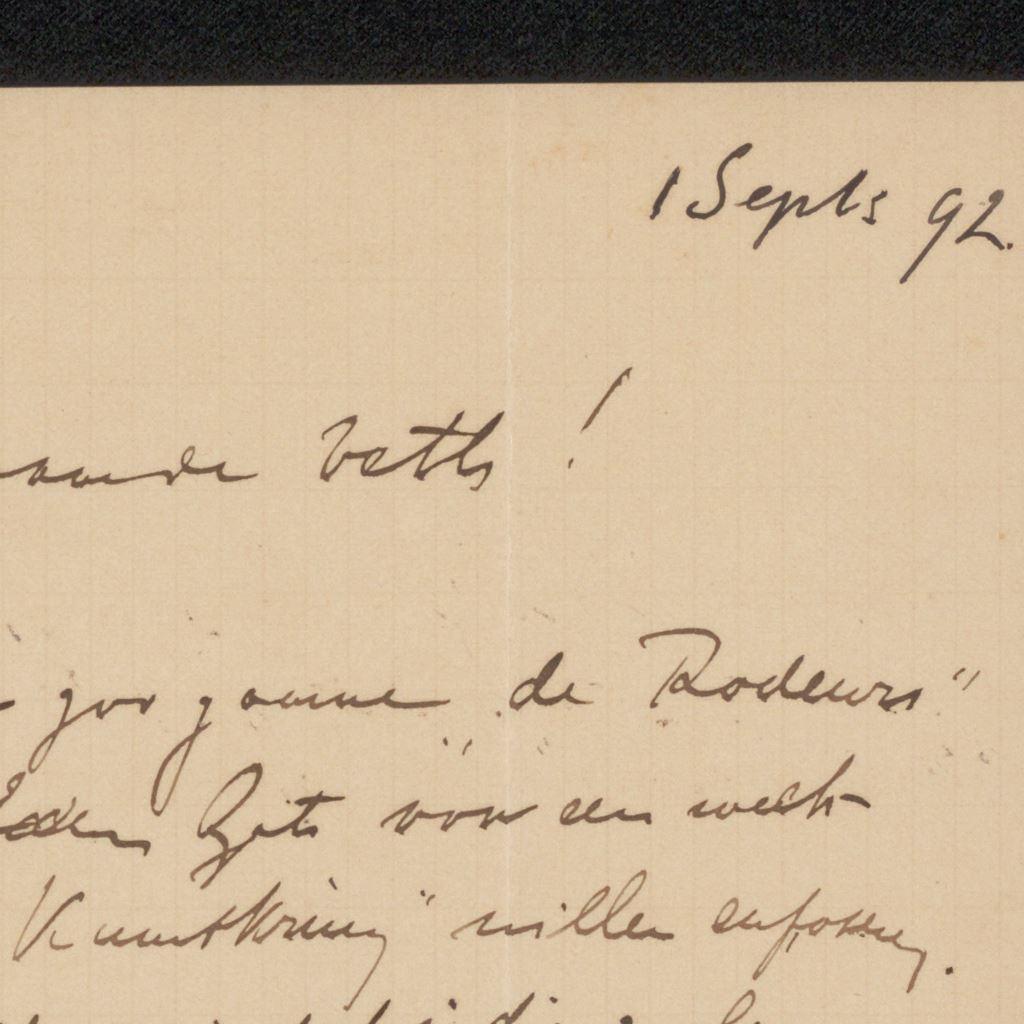 1 Septs 92.
aarde Veth!
zou gaarne „de Rodeurs"
Zijt voor een week
Kunstkring" willen exposeeren.